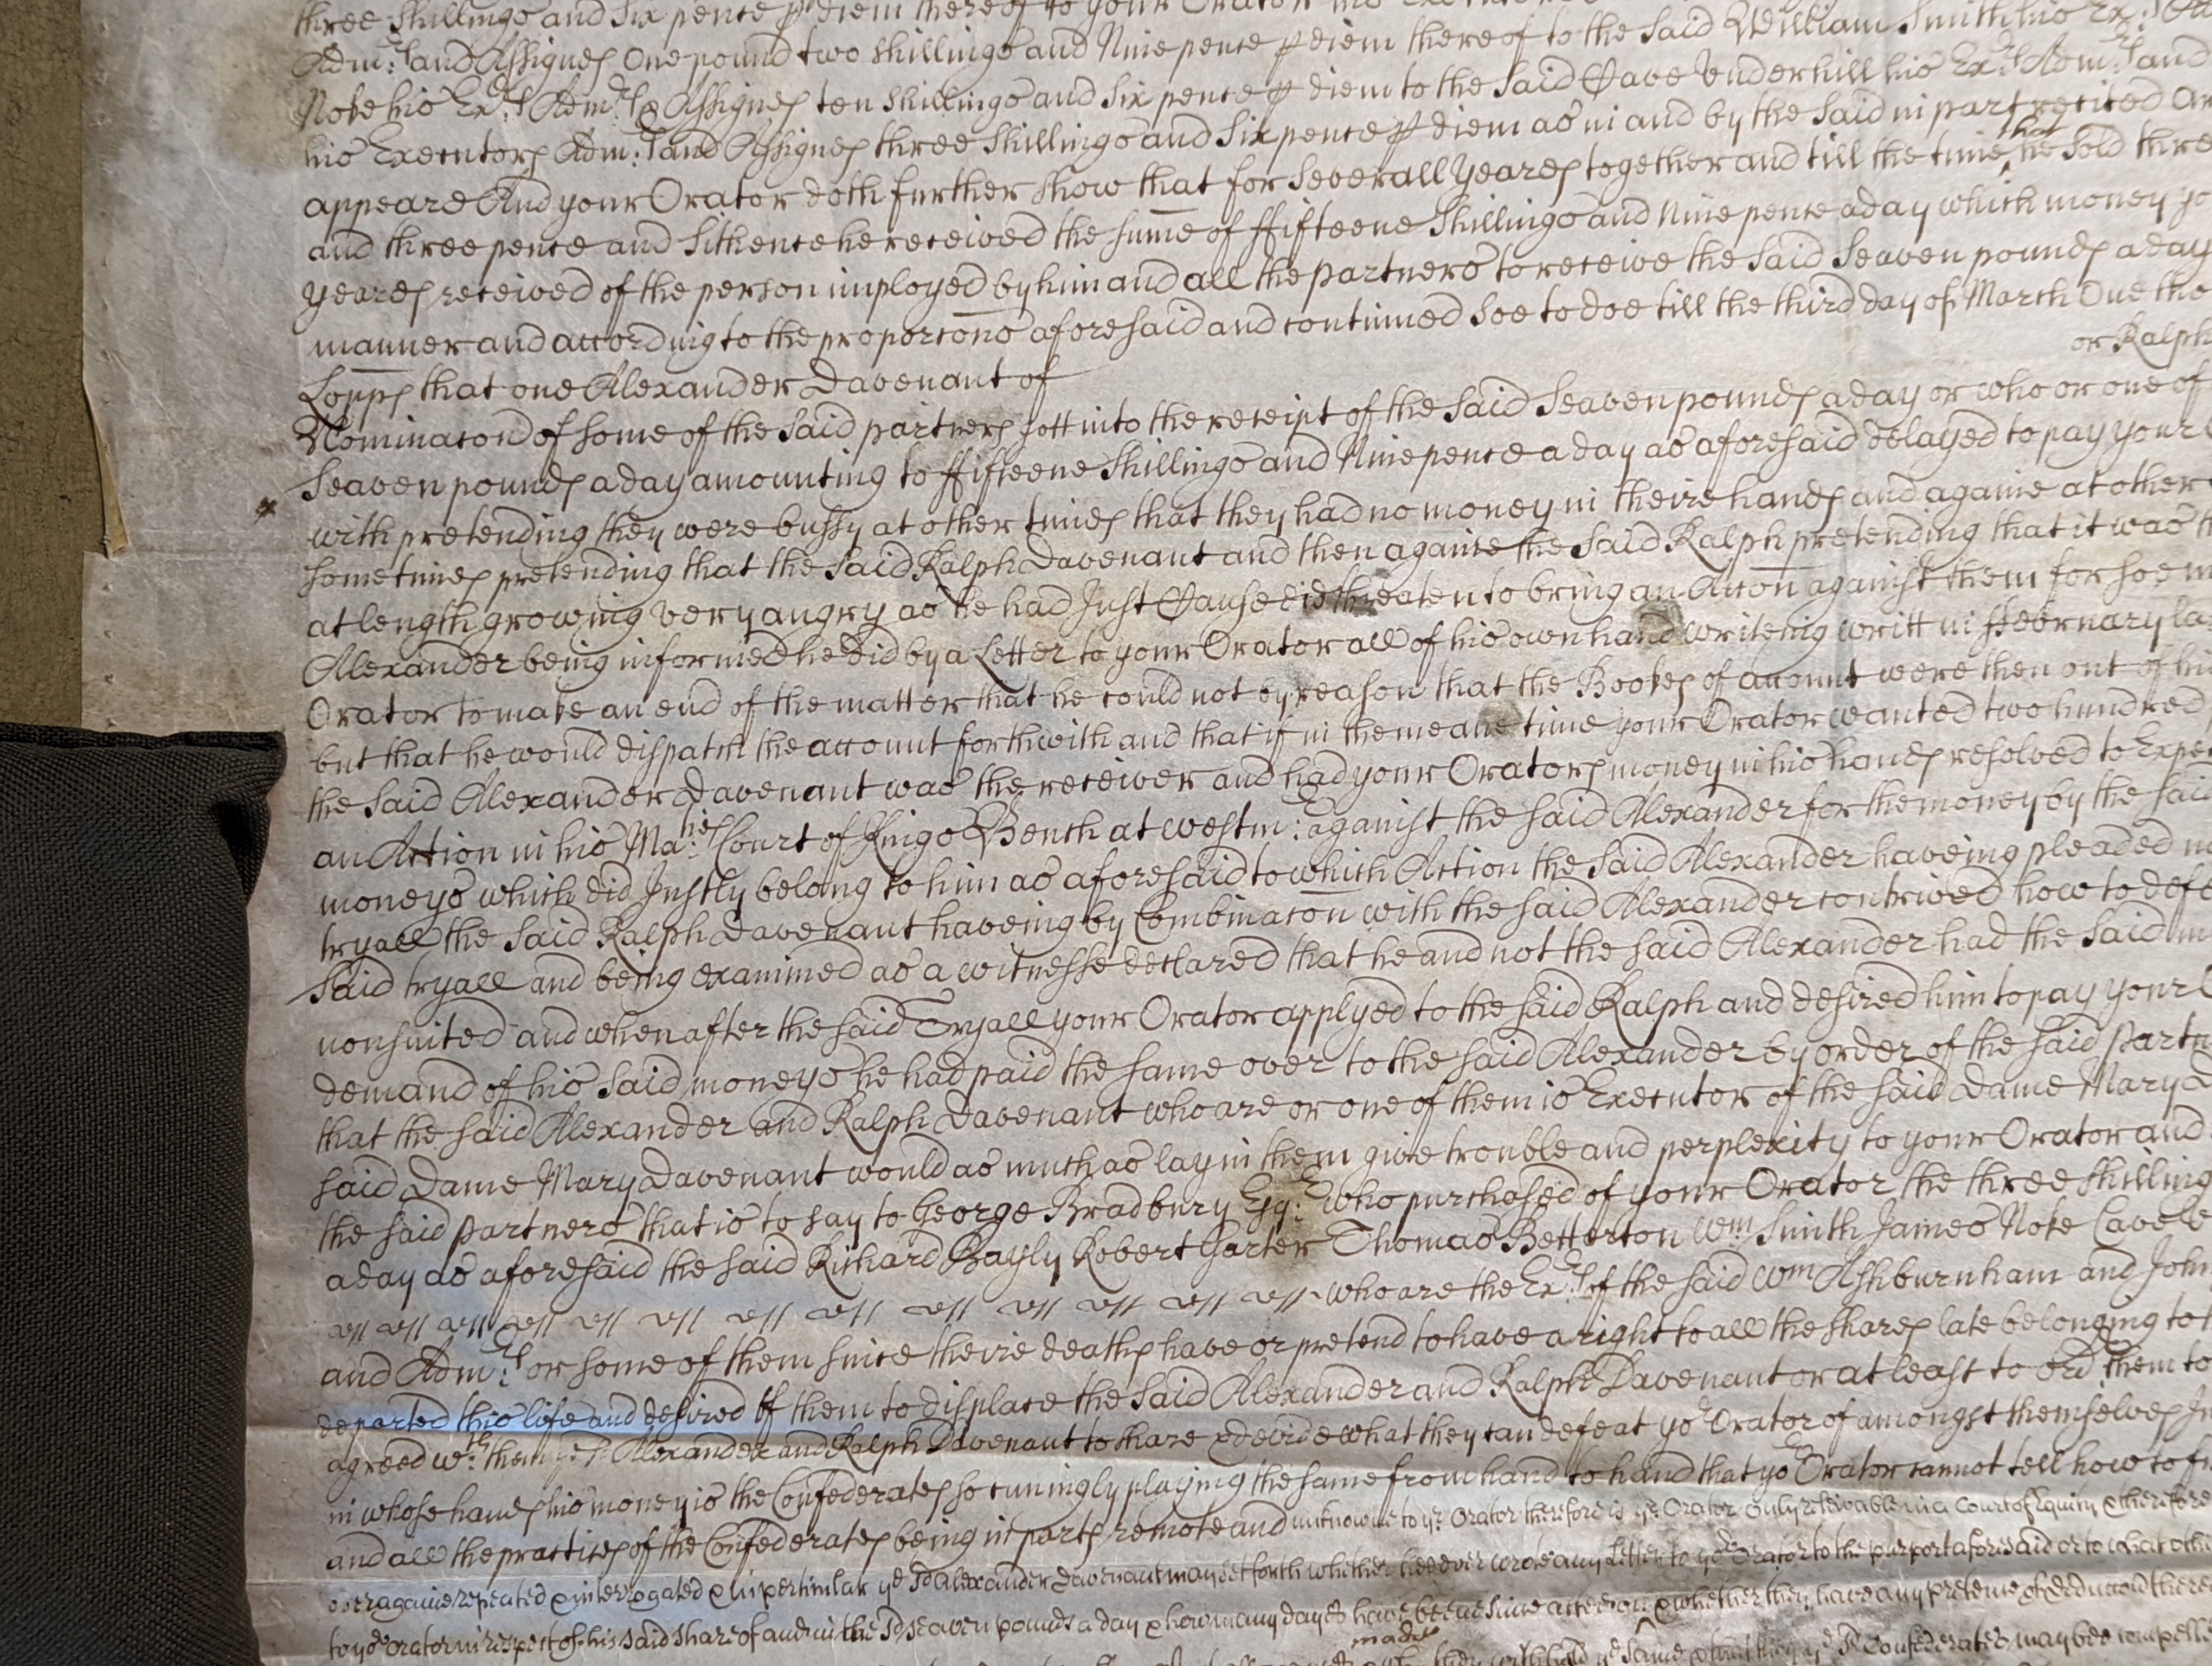 three Shillings and Six pence p diem thereof to your Orator his
Adm:rs and Assignes One pound two shillings and Nine pence p diem thereof to the said William Smith his Ex:rs
Noke his Ex:rs Adm:rs & Assignes ten Shillings and six pence p diem to the said Cave Underhill his Ex:rs Adm:rs and
his Executors Adm:rs and Assignes three Shillings and Six pence p diem as in and by the said in part recited
appeare And your Orator doth further show that for severall yeares together and till the time that he sold thre
and three pence and Sithence he received the sume of ffifteene Shillings and Nine pence a day which money yo
yeares received of the person imployed by him and all the partners to receive the said Seaven pounds a day
manner and according to the proporcons aforesaid and continued soe to doe till the third day of March One tho
or Ralph
Lopps that one Alexander Davenant of
Nominacon of some of the said partners gott into the receipt of the said Seaven pounds a day or who or one of
Seaven pounds a day amounting to ffifteene Shillings and Nine pence a day as aforesaid delayed to pay your
with pretending they were bussy at other times that they had no money in theire hands and againe at other
sometimes pretending that the said Ralph Davenant and then againe the said Ralph pretending that it was
at length growing very angry as he had Just Cause did threaten to bring an Accon against them for soe m
Alexander being informed he did by a Letter to your Orator all of his own hand writeing writt in ffebruary la
Orator to make an end of the matter that he could not by reason that the Bookes of account were then out of hi
but that he would dispatch the account forthwith and that if in the meane time your Orator wanted two hundred
the said Alexander Davenant was the receiver and had your Orators money in his hands resolved to Expe
an Action in his Ma:ties Court of Kings Bench at westm:r against the said Alexander for the money by the said
moneys which did Justly belong to him as aforesaid to which Action the said Alexander haveing pleaded
tryall the said Ralph Davenant haveing by Combinacon with the said Alexander contrived how to defe
said tryall and being examined as a witnesse declared that he and not the said Alexander had the said m
nonsuited and when after the said Tryall your Orator applyed to the said Ralph and desired him to pay your
demand of his said moneys he had paid the same over to the said Alexander by order of the said partn
that the said Alexander and Ralph Davenant who are or one of them is Executor of the said Dame Mary
said Dame Mary Davenant would as much as lay in them give trouble and perplexity to your Orator and
the said partners that is to say to George Bradbury Esq:r who purchased of your Orator the three shilling
a day as aforesaid the said Richard Bayly Robert Harter Thomas Betterton Wm Smith James Noke Cave
who are the Ex:rs of the said Wm Ashburnham and John
and Adm:rs or some of them since theire deaths have or pretend to have a right to all the shares late belonging to
departed this life and desired of them to displace the said Alexander and Ralph Davenant or at least to ord them to
agreed w:th them ye sd Alexander and Ralph Davenant to share & devide what they can defeat yor Orator of amongst themselves
in whose hands his money is the Confederates so cunningly playing the same from hand to hand that yor Orator cannot tell how to
and all the practises of the Confederates being in parts remote and unknowne to yr Orator therefore is yr Orator only releivable in a Court of Equity & therefore
over againe repeated & interrogated & in perticular ye sd Alexander Davenant may set forth whether hee ever wrote any Letter to yor Orator to the purport aforesaid or to what
to yor orator in respect of his said share of and in the sd seaven pounds a day & how many dayes have beene since & whether they have any pretence of
made they withhold ye same ye sd Confederates may bee compelle